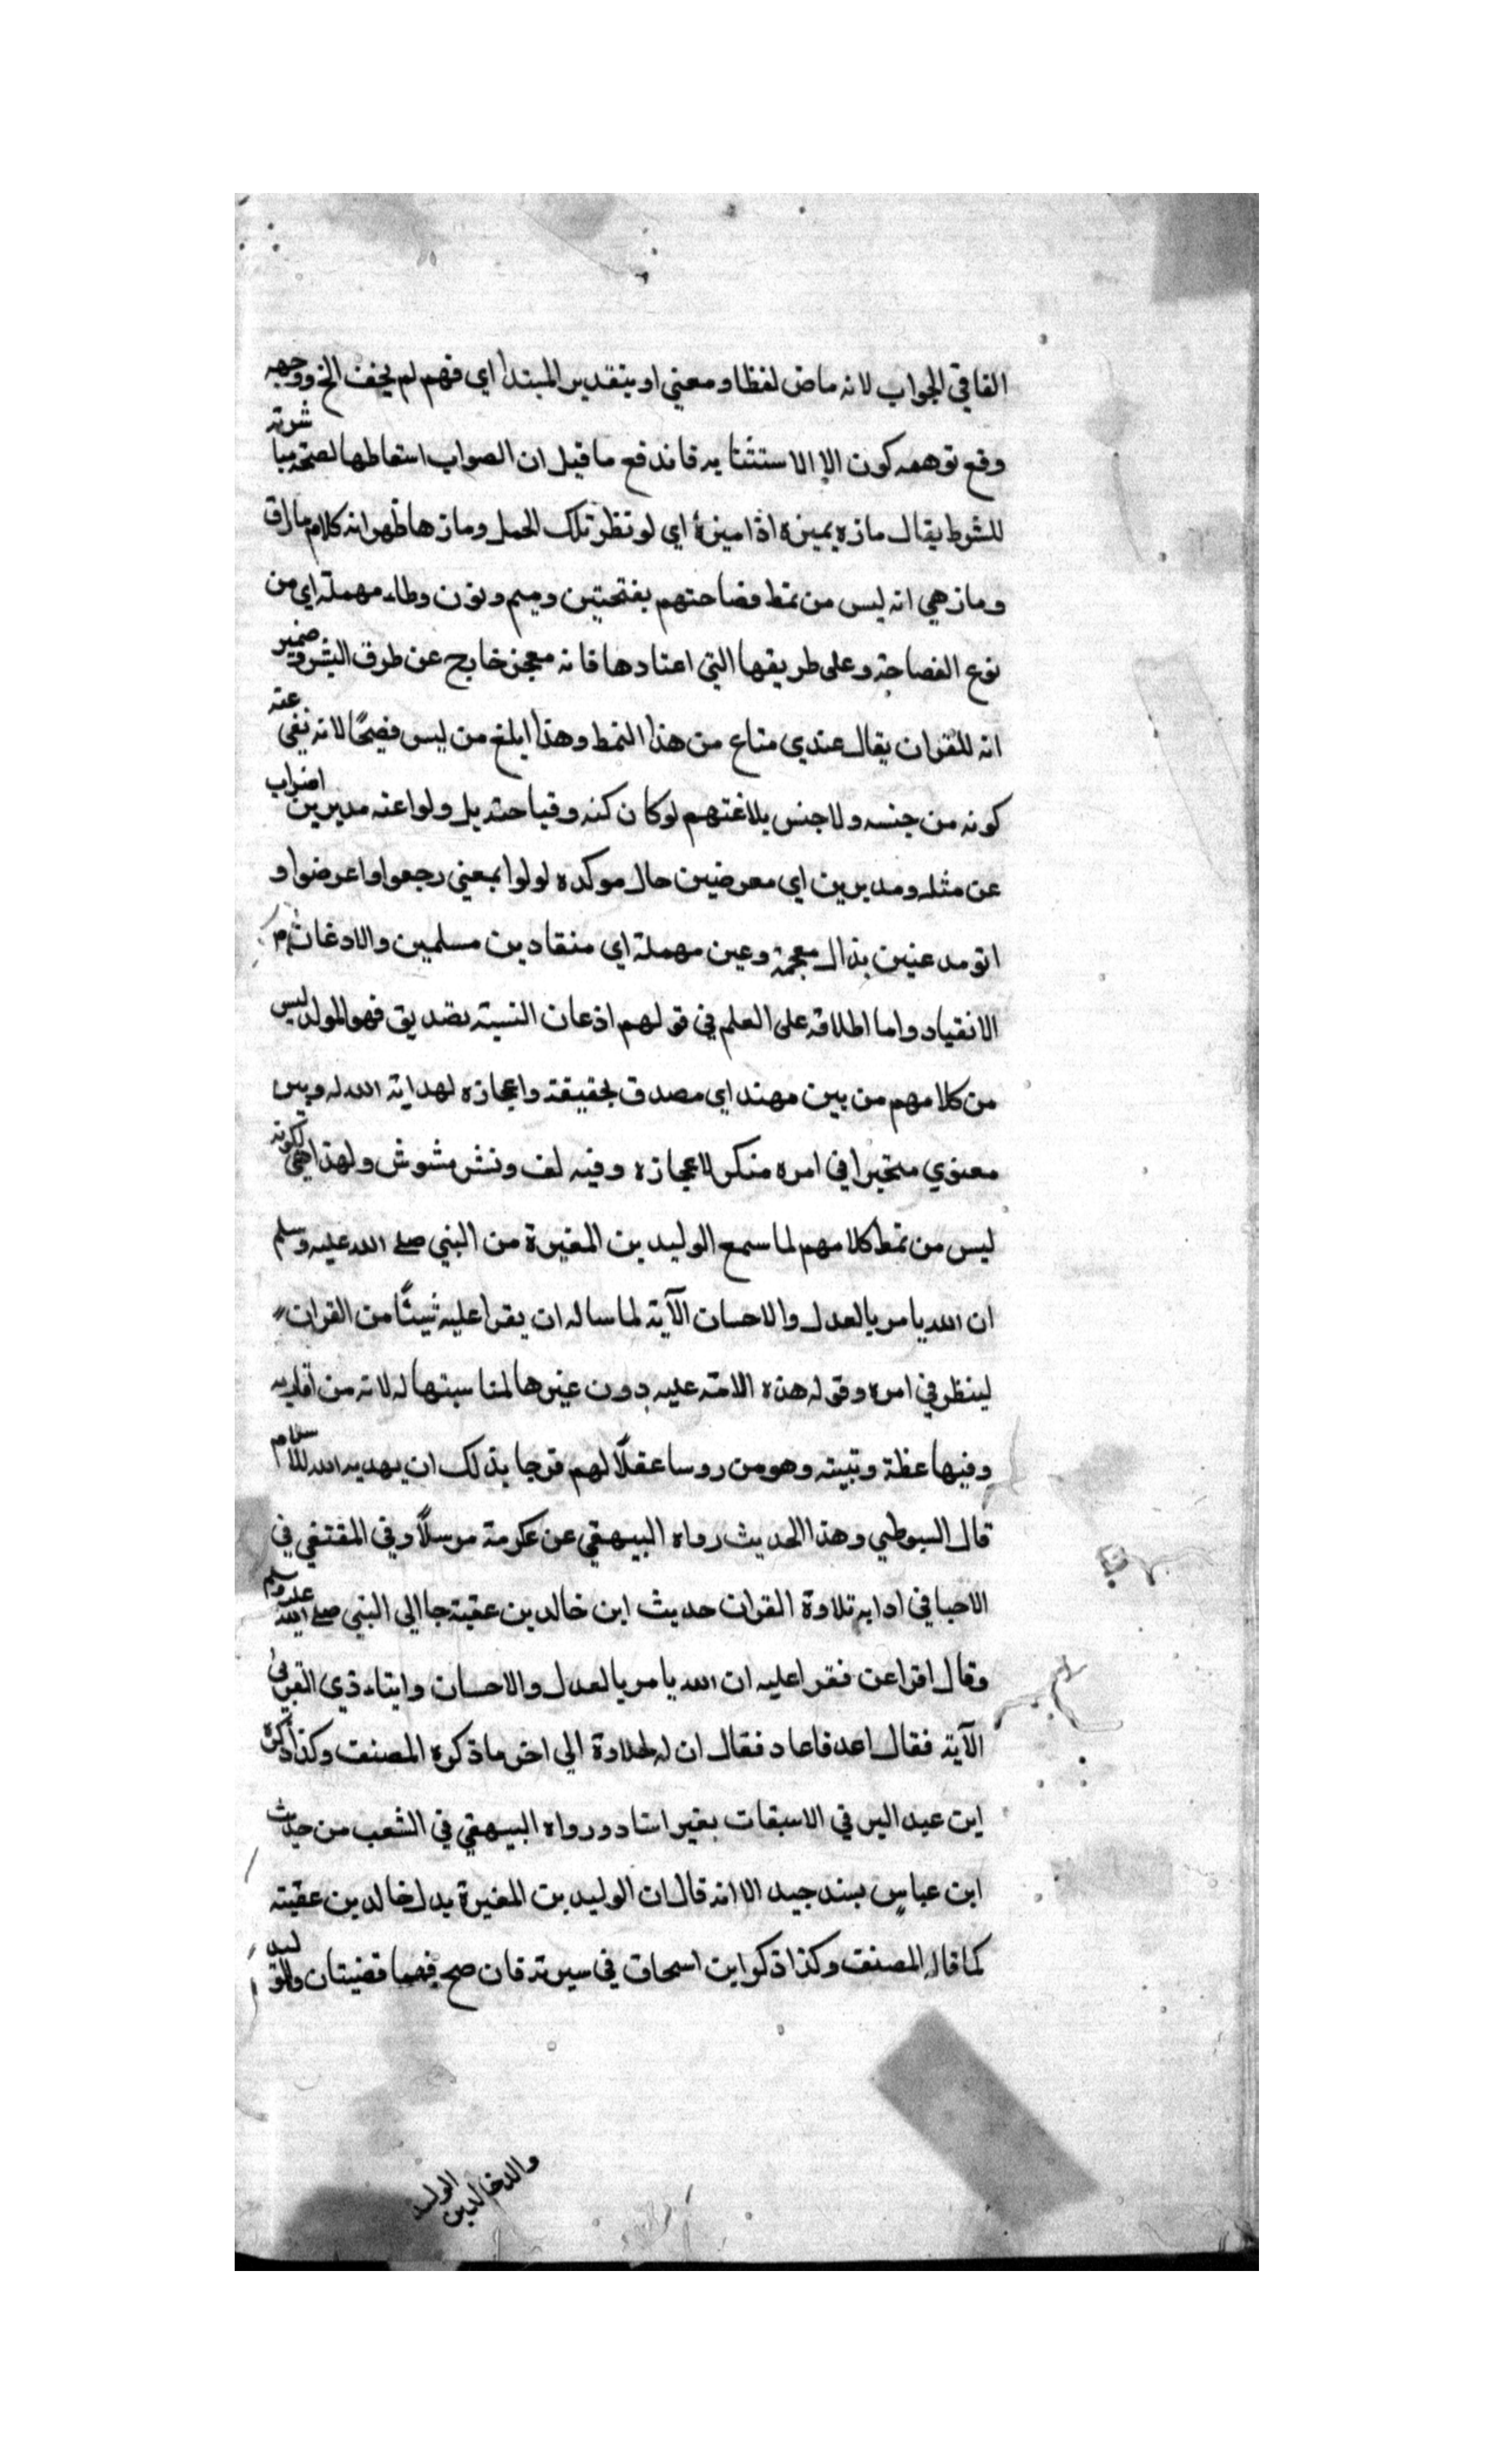 الفا في الجواب لانه ماض لفظا ومعني او بتقدير المبتدا اي فهم لم يخف الخ ووجهه
وقع توهمه كون الا الاستثنايه فاندفع ما قيل ان الصواب اسقاطها لصحة مباشرته
للشرط يقال مازه يميزه اذا ميزه اي لو نظر تلك الجمل ومازها ظهر انه كلام ما راق
وما زهي انه ليس من نمط فصاحتهم بفتحتين وميم ونون وطاء مهملة اي من
نوع الفصاحة وعلى طريقها التي اعتادها فانه معجز خارج عن طرق البشر وضمير
انه للقران يقال عندي متاع من هذا النمط وهذا ابلغ من ليس فصيحًا لانه نفي عنه
كونه من جنسه ولا جنس بلاغتهم لو كان كنه وقباحته بل ولوا عنه مدبرين اضراب
عن مثله ومدبرين اي معرضين حال موكده لولوا بمعني رجعوا واعرضوا و
اتو مدعنين بذال معجمة وعين مهملة اي منقادين مسلمين والادغان
الانقياد واما اطلاقه على العلم في قولهم اذعان النسبة تصديق فهو المولد ليس
من كلامهم من بين مهتد اي مصدق بحقيقة واعجازه لهداية الله له وبين
معنوي متحيرا في امره منكر لاعجازه وفيه لف ونشر مشوش ولهذا اي لكونه
ليس من نمط كلامهم لما سمع الوليد بن المغيرة من النبي صلي الله عليه وسلم
ان الله يامر بالعدل والاحسان الآية لما ساله ان يقرا عليه شيئًا من القران
لينظر في امره وقوله هذه الامة عليه دون غيرها لمناسبتها له لانه من اقاربه
وفيها عظة وتبيته وهو من روسا عقلًا لهم فرجا بذلك ان يهديه الله للاسلام
قال السيوطي وهذا الحديث رواه البيهقي عن عكرمة مرسلًا وفي المقتفي في
الاحيا في ادابه تلاوة القران حديث ابن خالد بن عقبة جا الي النبي صلي الله عليه وسلم
وقال اقرا عن فقرا عليه ان الله يامر بالعدل والاحسان وايتاء ذي القربى
الآية فقال اعد فاعاد فقال ان له لحلاوة الى اخر ما ذكره المصنف وكذا ذكره
ابن عبد البر في الاسبقات بغير اسناد ورواه البيهقي في الشعب من حديث
ابن عباس بسند جيد الا انه قال ان الوليد بن المغيرة بدل خالد بن عقبة
كما قاله المصنف وكذا ذكر ابن اسحاق في سيرته فان صح فهما قضيتان والوليد
والد خالد بن الوليد